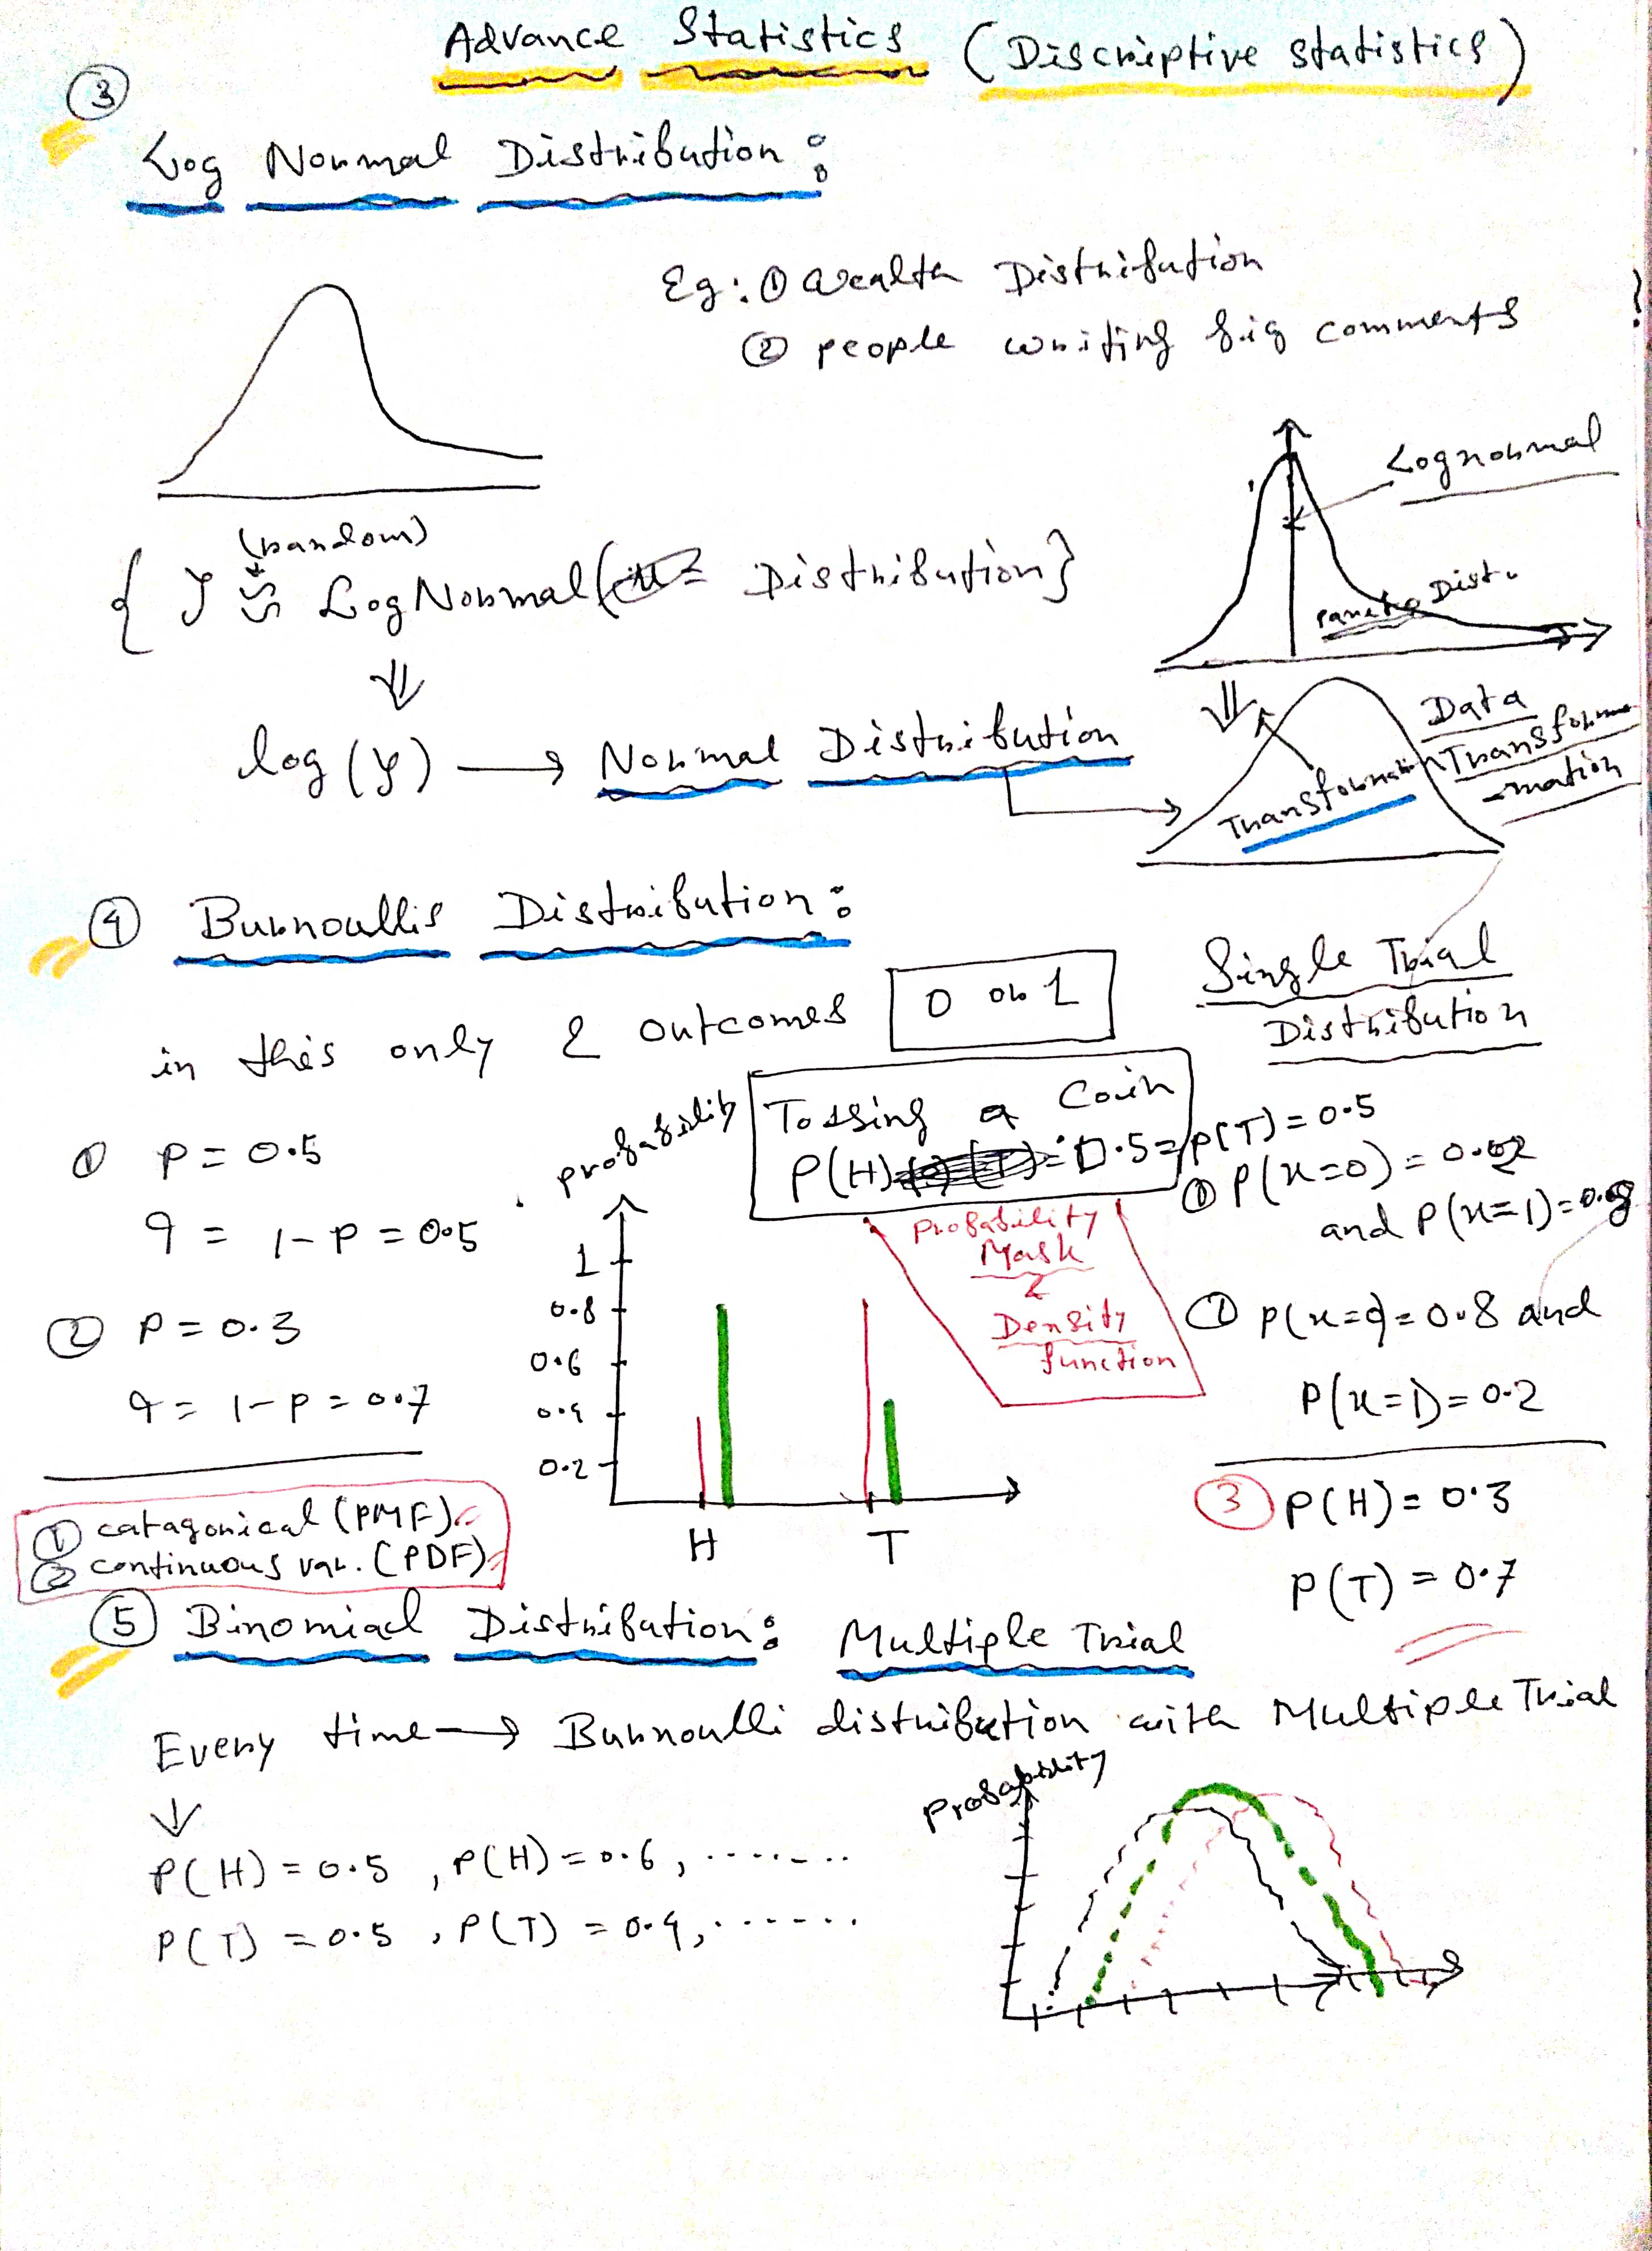 Advance Statistics (Discriptive statistics)
③
Log Normal Distribution :
Eg: ① Wealth Distribution
② people writing big comments
Lognormal
pareto Dist.
(random)
{ Y ≈ Log Normal ( Distribution }
log (y) → Normal Distribution
Data
Transform
-mation
Transformation
④ Burnoullis Distribution :
Single Trial
Distribution
in this only 2 outcomes
0 or 1
Tossing a Coin
P(H) = 0.5 = P(T) = 0.5
① p = 0.5
q = 1-p = 0.5
② p = 0.3
q = 1-p = 0.7
probability
1
0.8
0.6
0.4
0.2
H T
Probability
Mask
Density
function
① P(x=0) = 0.2
and P(x=1) = 0.8
② P(x=0) = 0.8 and
P(x=1) = 0.2
③ P(H) = 0.3
P(T) = 0.7
① catagorical (PMF)
② continuous var. (PDF)
⑤ Binomial Distribution : Multiple Trial
Every time → Burnoulli distribution with Multiple Trial
P(H) = 0.5 , P(H) = 0.6 , .......
P(T) = 0.5 , P(T) = 0.4 , ......
Probability